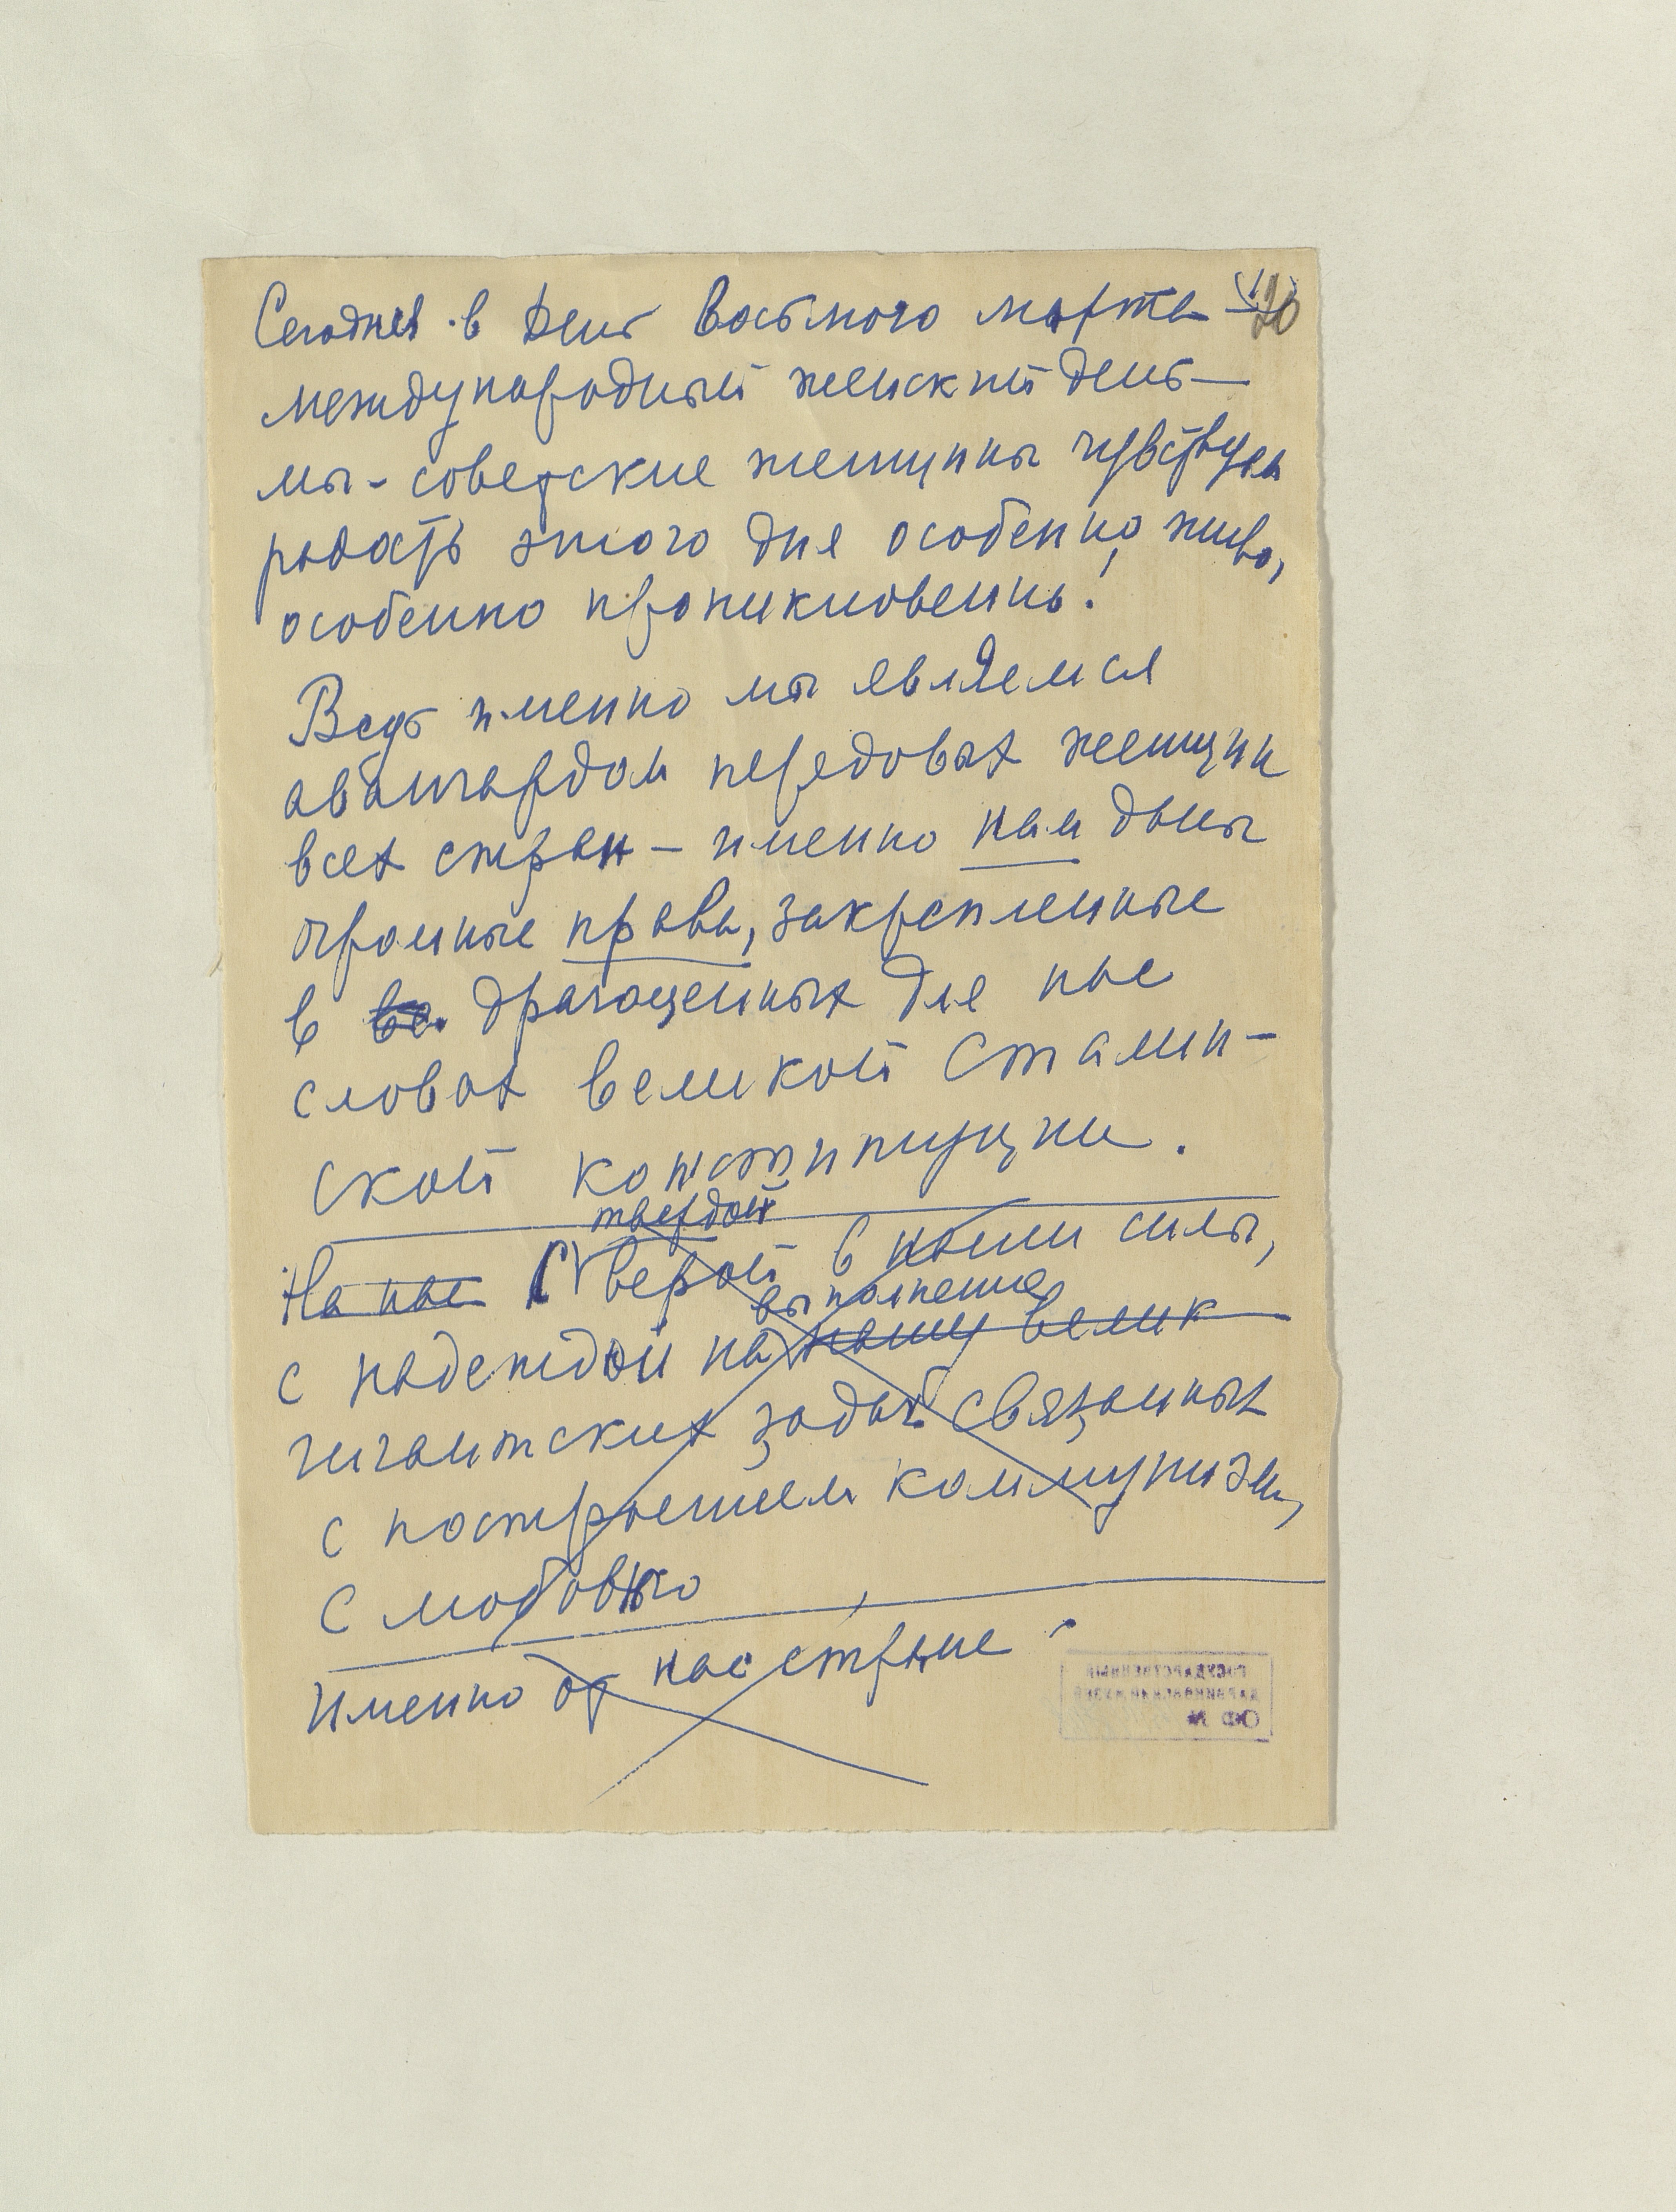 Сегодня в день Восьмого марта — 20
международный женский день —
мы - советские женщины чувствуем
радость этого дня особенно живо,
особенно проникновенно!
Ведь именно мы являемся
авангардом передовых женщин
всех стран — именно нам даны
огромные права, закрепленные
в во. драгоценных для нас
словах великой Сталин-
ской конституции.
твердой
На нас С верой в наши силы,
выполнение
с надеждой на нашу велик
гигантских задач связанных
с построением коммунизма,
с любовью
Именно от нас стране
ГОСУДАРСТВЕННЫЙ
ОФ №